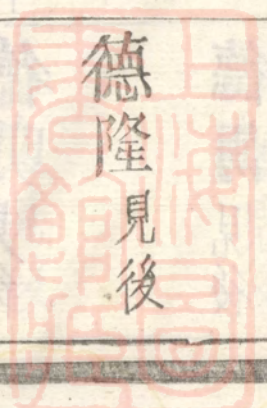 德隆見後